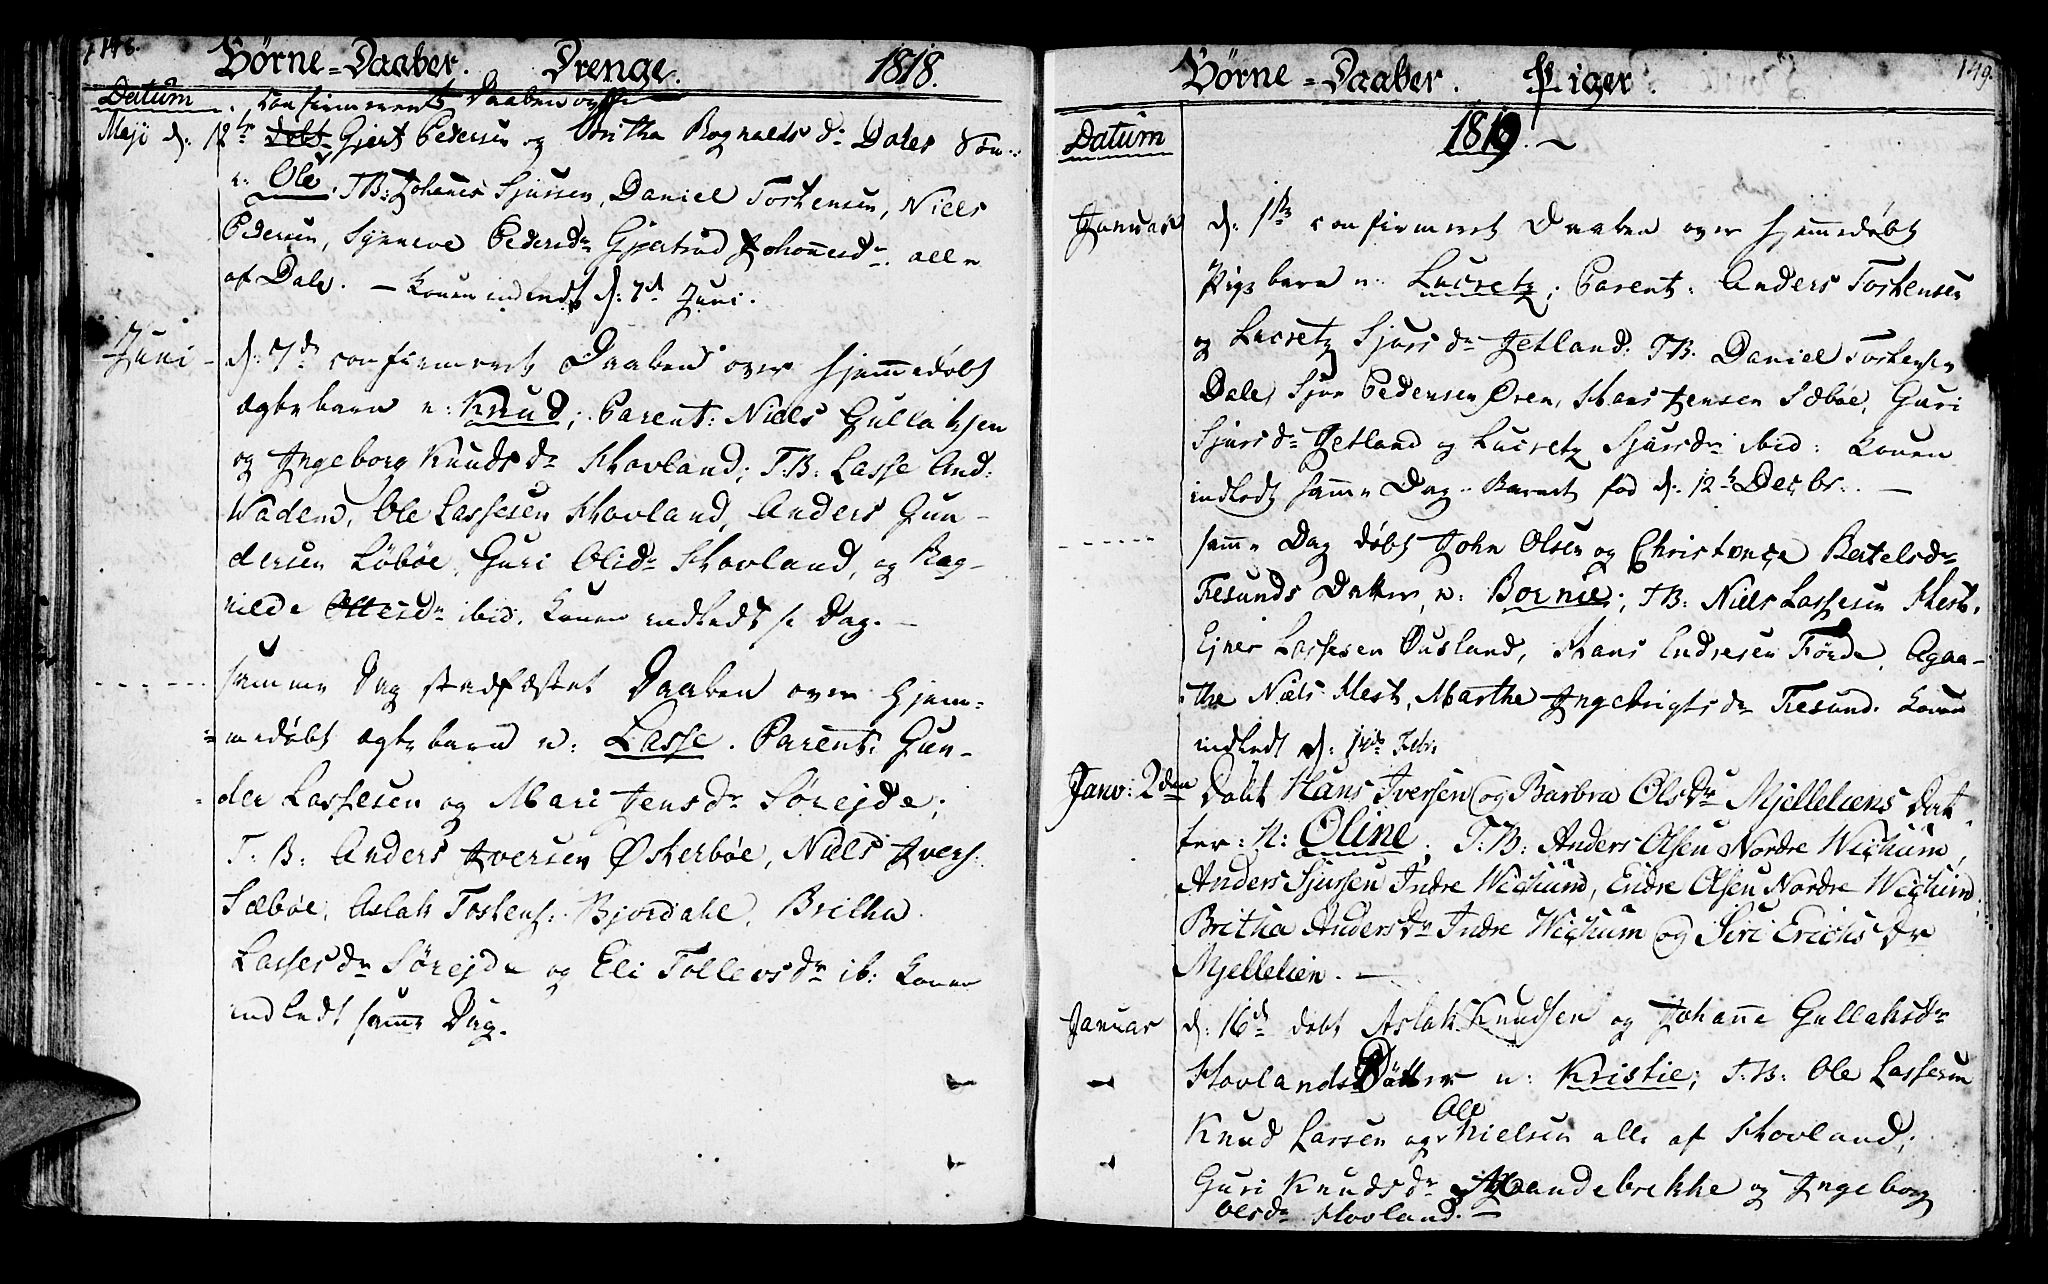 148.
Børne-Daaber. Drenge. 1818.
Datum
confirmeret Daaben
Maji d: 12te Gjert Pedersen og Britha Rognalds dr Dales Søn
n: Ole, T.B: Johannes Sjursen, Daniel Tostensen, Niels
Pedersen, Synneve Pedersdr Gjertrud Johannesdr alle
af Dale. — Konen indledt d: 7de Juni.
Juni d: 7de confirmeret Daaben over hjemmedøbt
ægte barn n: Knud; Parent: Niels Gullaksen
og Ingeborg Knudsdr Hovland; T.B: Lasse And:
Wadem, Ole Lassesen Hovland, Anders Gun-
dersen Løbøe, Guri Olsdr Hovland, og Rag-
nilde Ottesdr ibid. Konen indledt s. Dag. —
samme Dag stadfæstet Daaben over hjem-
medøbt ægte barn n: Lasse. Parent: Gun-
der Lassesen og Mari Jensdr Sørejde;
T.B: Anders Iversen Østerbøe, Niels Ivers:
Sæbøe, Aslak Tostens: Bjordahl, Britha
Lassesdr Sørejde og Eli Tollevsdr ib: Konen
indledt samme Dag.
149.
Børne-Daaber. Piger.
Datum 1819.
Januar d: 1ste confirmeret Daaben over hjemmedøbt
Pige barn n: Lucretz; Parent: Anders Tostensen
og Lucretz Sjursdr Jetland: T.B. Daniel Tostensen
Dale, Sjur Pedersen Øren, Hans Jensen Sæbøe, Guri
Sjursdr Jetland og Lucretz Sjursdr ibid: Konen
indledt samme Dag. Barnet fød d: 12te Decbr. —
samme Dag døbt John Olsen og Christence Bertelsdr
Tresunds Datter, n: Bornie; T.B: Niels Lassesen Hest,
Ejner Lassesen Øusland, Hans Endresen Førde, Agaa-
the Niels Hest, Marthe Ingebrigtsdr Tresund. Konen
indledt d: 14de Febr.
Janv: 2den Døbt Hans Iversen og Barbra Olsdr Mjelleliens Dat-
ter: N: Oline. T.B: Anders Olsen Nordre Wichum,
Anders Sjursen Indre Wichum, Endre Olsen Nordre Wichum,
Britha Andersdr Indre Wichum og Siri Erichsdr
Mjellelien. —
Januar d: 16de døbt Aslak Knudsen og Johanne Gullaksdr
Hovlands Datter n: Kristie; T.B: Ole Lassesen
Knud Lassen og Ole Nielsen alle af Hovland;
Guri Knudsdr Haandebrekke og Ingeborg
Olsdr Hovland. —